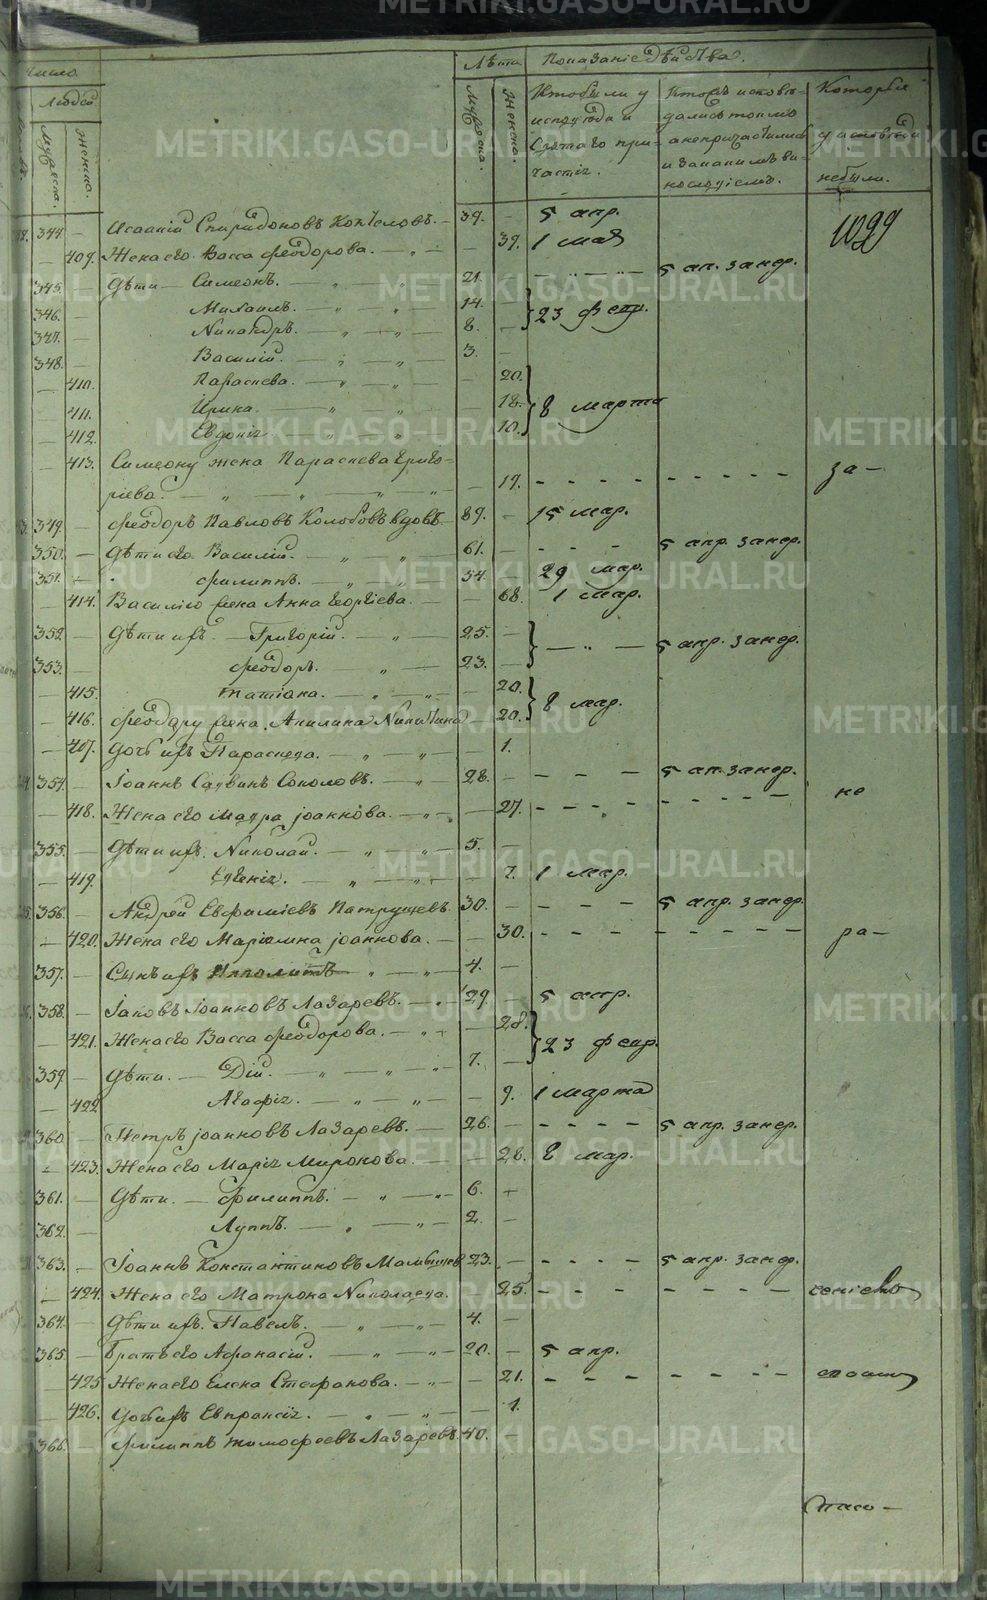 Число
Людей
Мужеска.
Женска.
Лѣта
Мужеска.
Женска.
Показаніе Дѣйства.
Кто были у
исповѣда и
Святаго при-
частія.
Кто исповѣ-
дались токмо
а не причастились
и за какимъ ви-
нословіемъ.
Которые
у исповѣди
не были.
1099
344. — Спиридоновъ — 39. — 5 апр.
— 409. Жена его Васса Феодорова. — 39. 1 мая
345. — Дѣти — Симеонъ. — 21. — 5 ап. занер.
346. — Михаилъ. — 14. — 23 февр.
347. — Никандръ. — 8. —
348. — Василій. — 3. —
— 410. Параскева. — 20.
— 411. Ирина. — 18. 8 марта
— 412. Евдокія — 10.
— 413. Симеону жена Параскева Григо-
ріева. — 19. за-
349. — Феодоръ Павловъ Колобовъ вдовъ 89. — 15 мар.
350. — Дѣти его Василій. — 61. — 5 апр. занер.
351. — Филиппъ. — 54. — 29 мар.
— 414. Василію жена Анна Георгіева. — 68. 1 мар.
352. — Дѣти ихъ — Григорій. — 25. — 5 апр. занер.
353. — Феодоръ. — 23. —
— 415. Татіана. — 20. 8 мар.
— 416. Феодору жена Акилина Никитина — 20.
— 407. Дочь ихъ Параскева. — 1.
354. — Іоаннъ Саввинъ Соколовъ. — 28. — 5 ап. занер.
— 418. Жена его Мавра Іоаннова. — 27. не
355. — Дѣти ихъ. Николай. — 5. —
— 419. Евгенія. — 7. 1 мар.
356. — Андрей Евфиміевъ Патрушевъ. 30. — 5 апр. занер.
— 420. Жена его Маріамна Іоаннова. — 30. ра-
357. — Сынъ ихъ Ипполитъ — 4. —
358. — Іаковъ Іоанновъ Лазаревъ. — 29. — 5 апр.
— 421. Жена его Васса Феодорова. — 28. 23 февр.
359. — Дѣти. — Дій. — 7. —
— 422. Агафія. — 9. 1 марта
360. — Петръ Іоанновъ Лазаревъ. — 26. — 5 апр. занер.
— 423. Жена его Марія Миронова. — 26. 8 мар.
361. — Дѣти. — Филиппъ. — 6. —
362. — Луппъ. — 2. —
363. — Іоаннъ Константиновъ 23. — 5 апр. занер.
— 424. Жена его Матрона Николаева. 25.
364. — Дѣти ихъ. Павелъ. — 4. —
365. — Братъ его Афанасій. — 20. — 5 апр.
— 425. Жена его Елена Стефанова. — 21.
— 426. Дочь ихъ Евпраксія. — 1.
366. — Филиппъ Тимофеевъ Лазаревъ. 40. —
METRIKI.GASO-URAL.RU